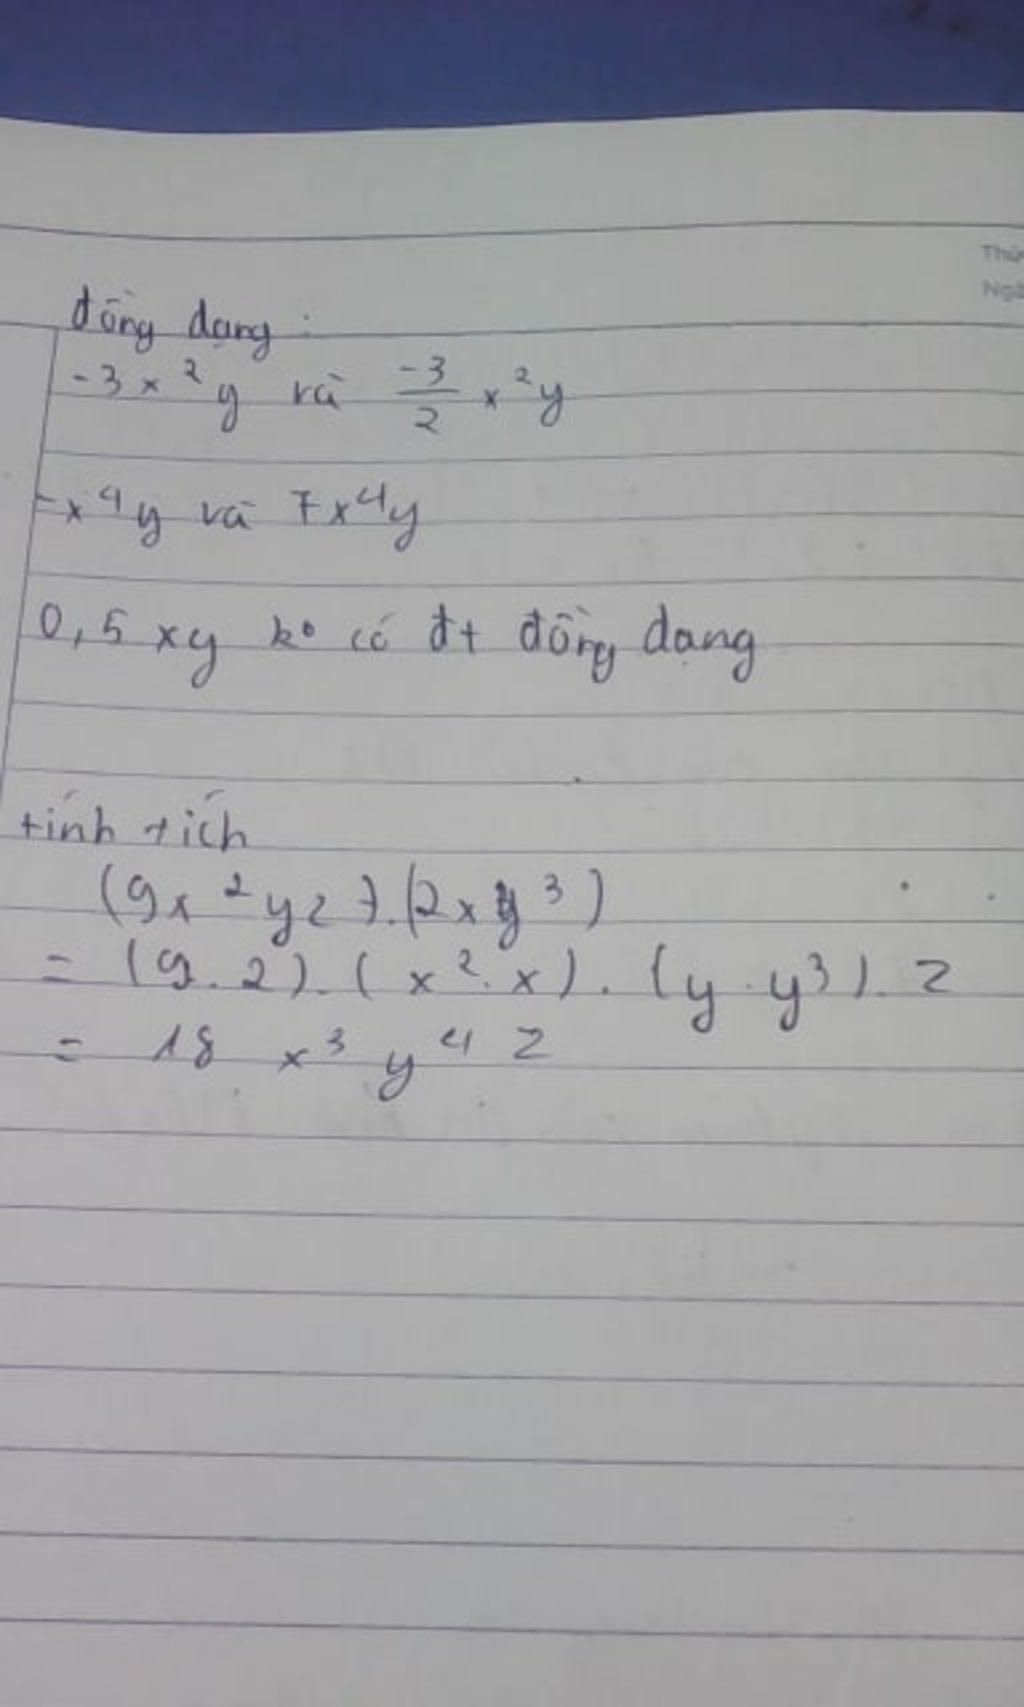 Thứ
Ngà
đồng dạng :
-3x²y và -3/2 x²y
-x⁴y và 7x⁴y
0,5 xy ko có đt đồng dạng
tính tích
(9x²yz).(2xy³)
= (9.2).(x².x).(y.y³).z
= 18 x³y⁴z